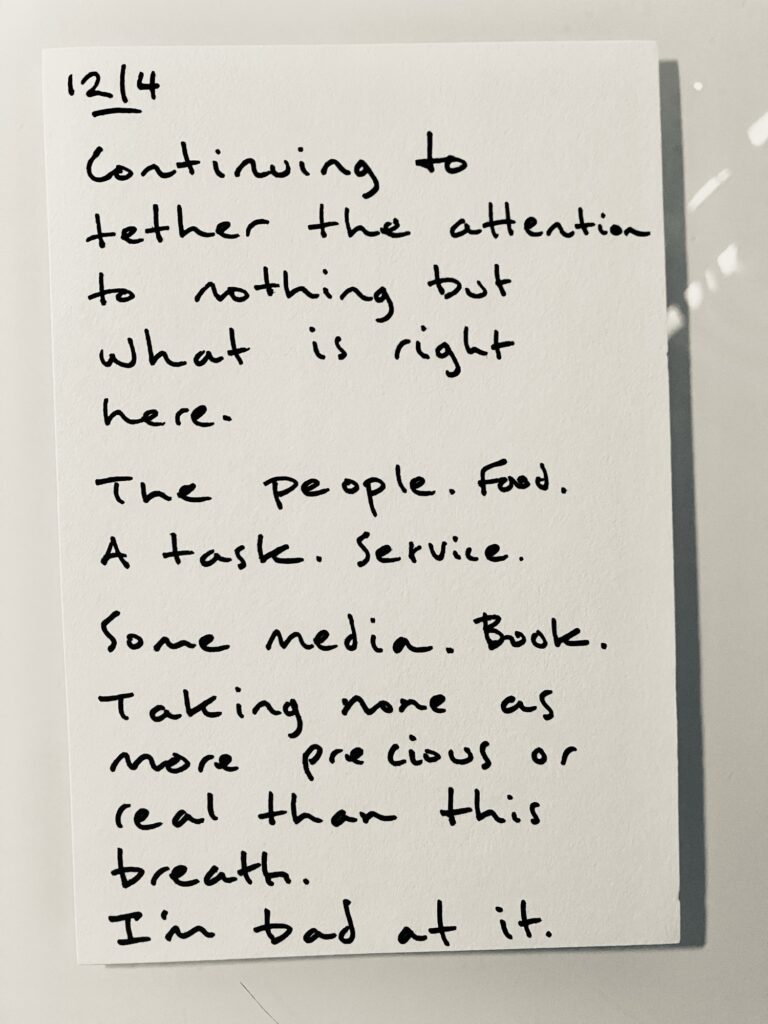 12/4
Continuing to
tether the attention
to nothing but
what is right
here.
The people. Food.
A task. Service.
Some media. Book.
Taking none as
more precious or
real than this
breath.
I'm bad at it.